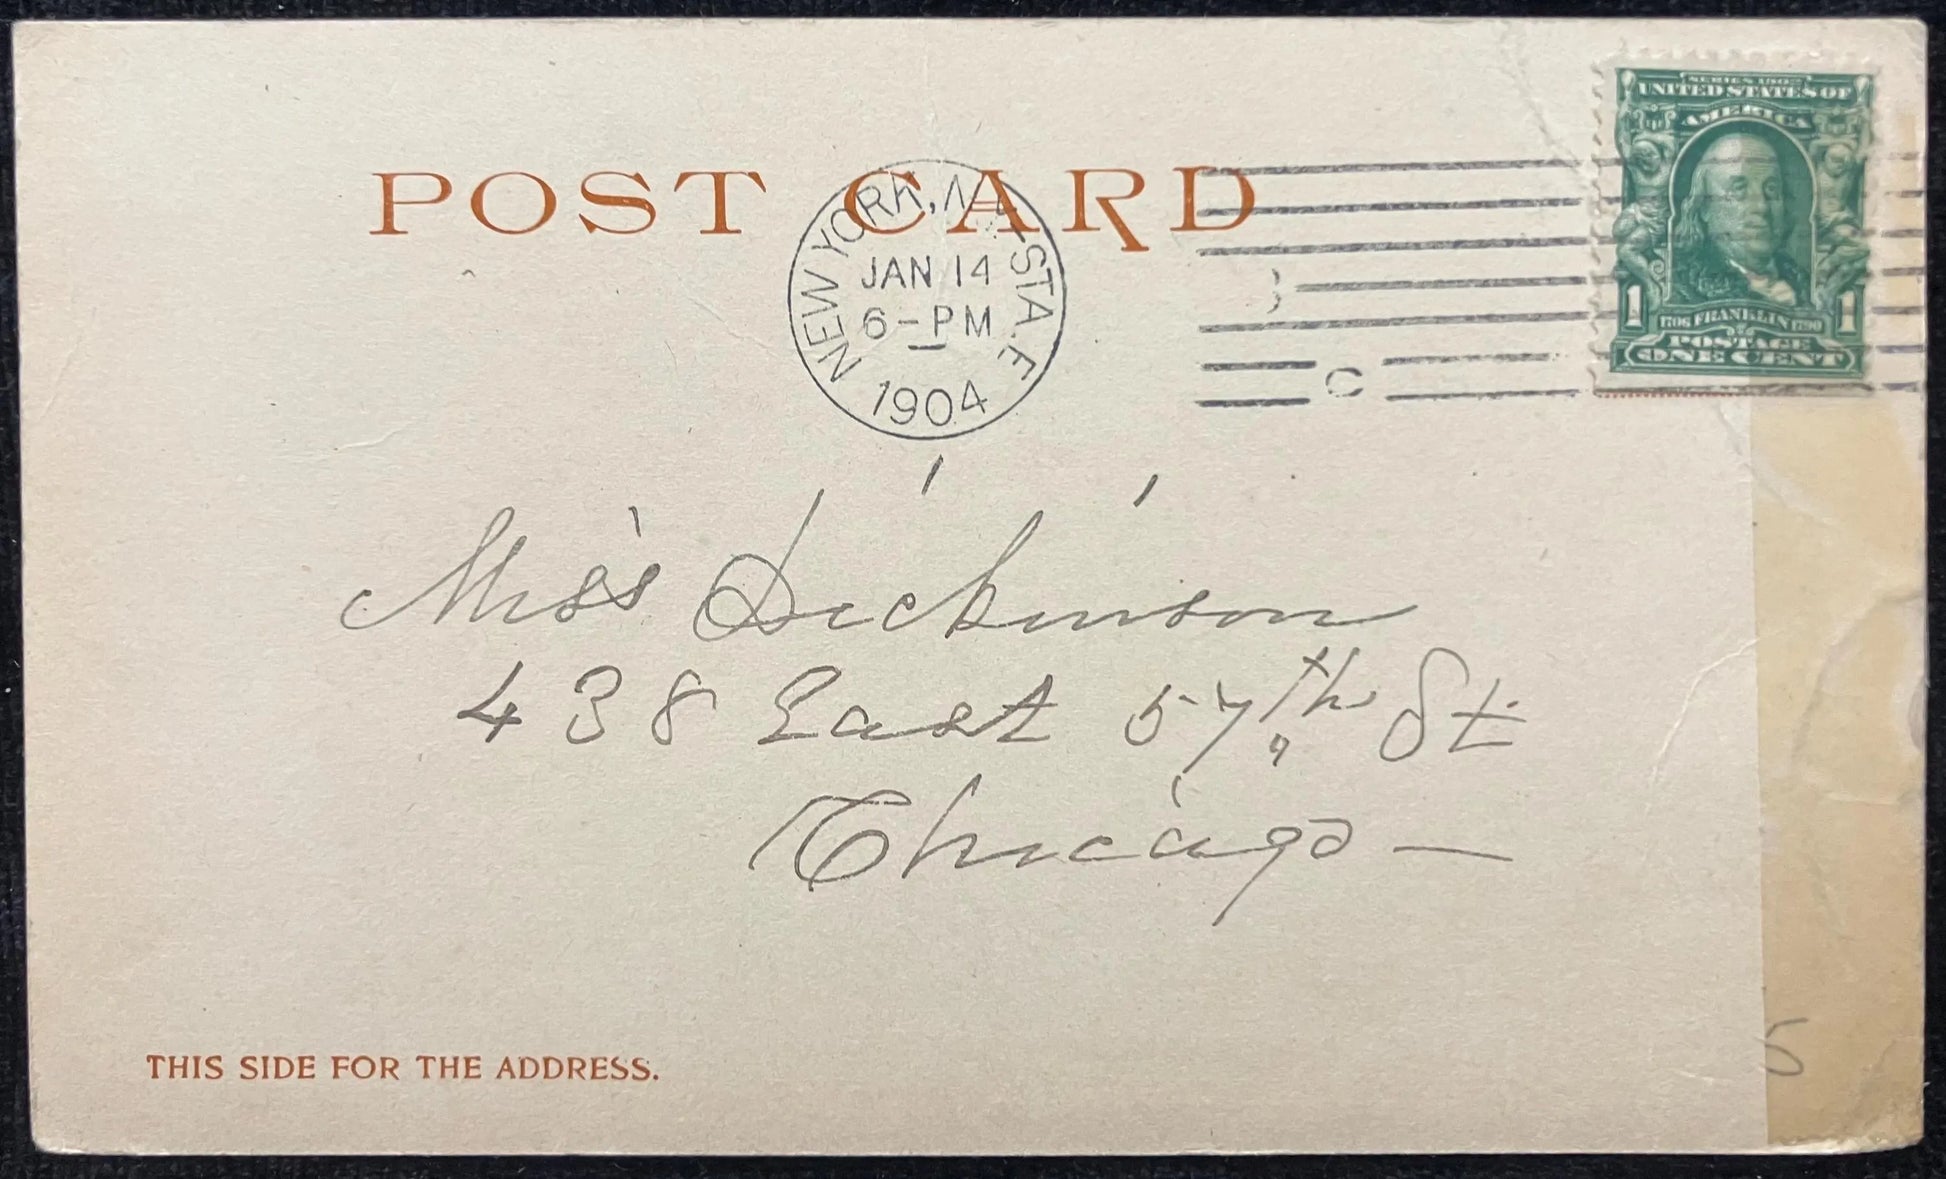 SERIES 1902
UNITED STATES OF
AMERICA
POST CARD
NEW YORK, N.Y. STA. E
JAN 14
6-PM
1904
1 1
1706 FRANKLIN 1790
POSTAGE
ONE CENT
C
Miss Dickinson
438 East 57th St.
Chicago —
THIS SIDE FOR THE ADDRESS.
5